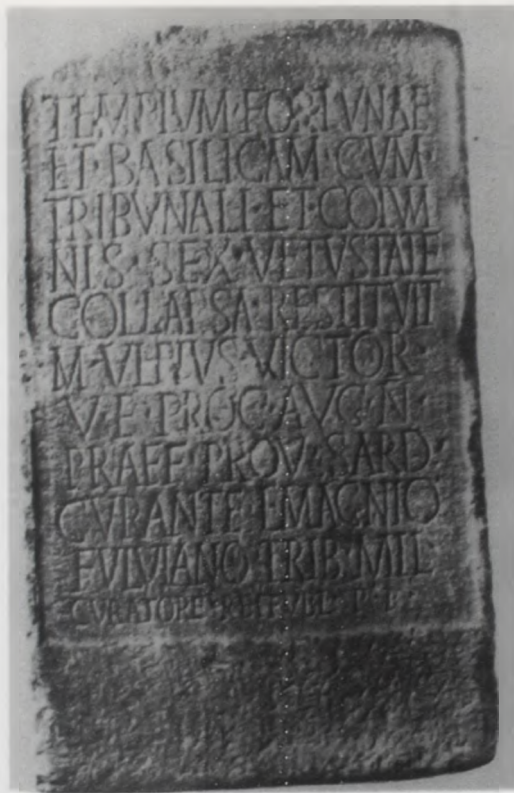 TEMPLVM·FORTVNAE
ET·BASILICAM·CVM·
TRIBVNALI·ET·COLVM
NIS·SEX·VETVSTATE
COLLAPSA·RESTITVIT
M·VLPIVS·VICTOR·
V·E·PROC·AVG·N·
PRAEF·PROV·SARD·
CVRANTE·L·MAGNIO
FVLVIANO·TRIB·MIL
CVRATORE·REI·PVBL·P·P·